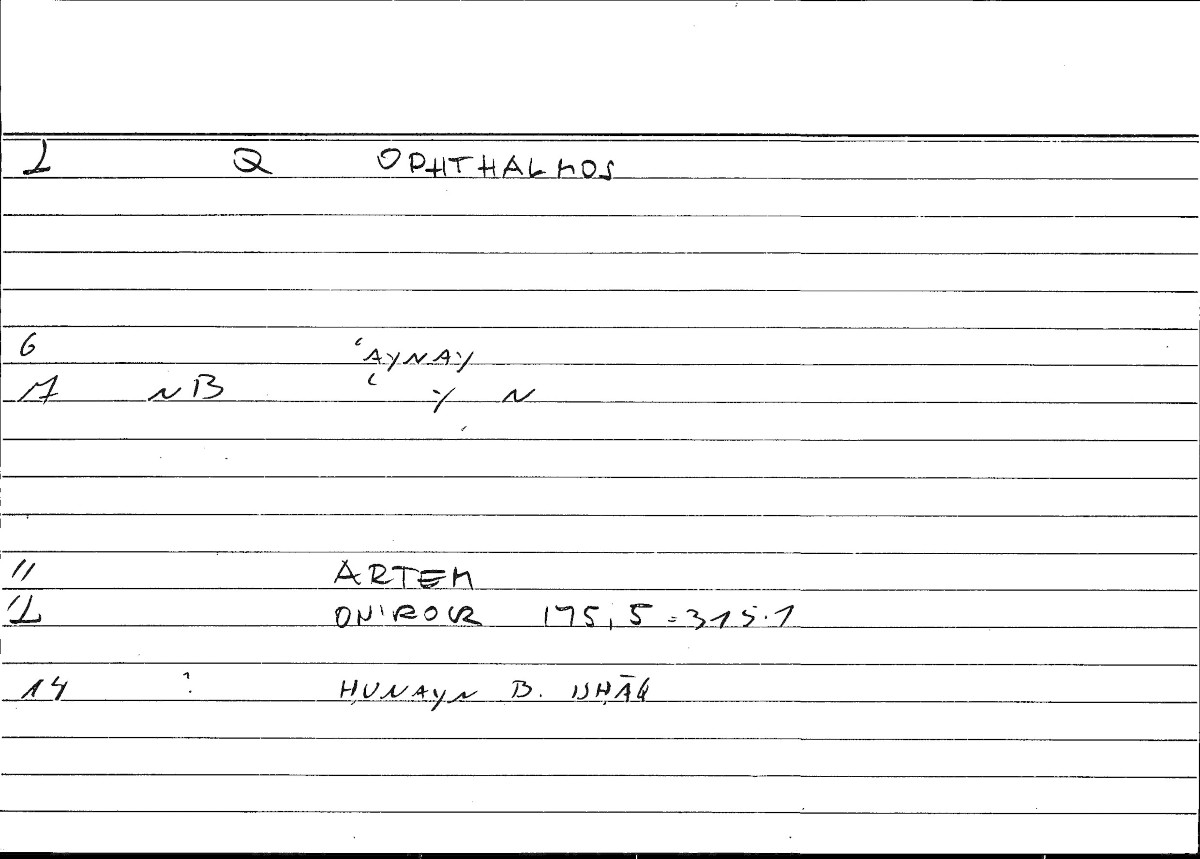 2 Q OPHTHALMOS
6 ʿAYNAY
7 NB ʿ Y N
11 ARTEM
12 ONIROCR 175,5 = 315.1
14 : ḤUNAYN B. ISḤĀQ